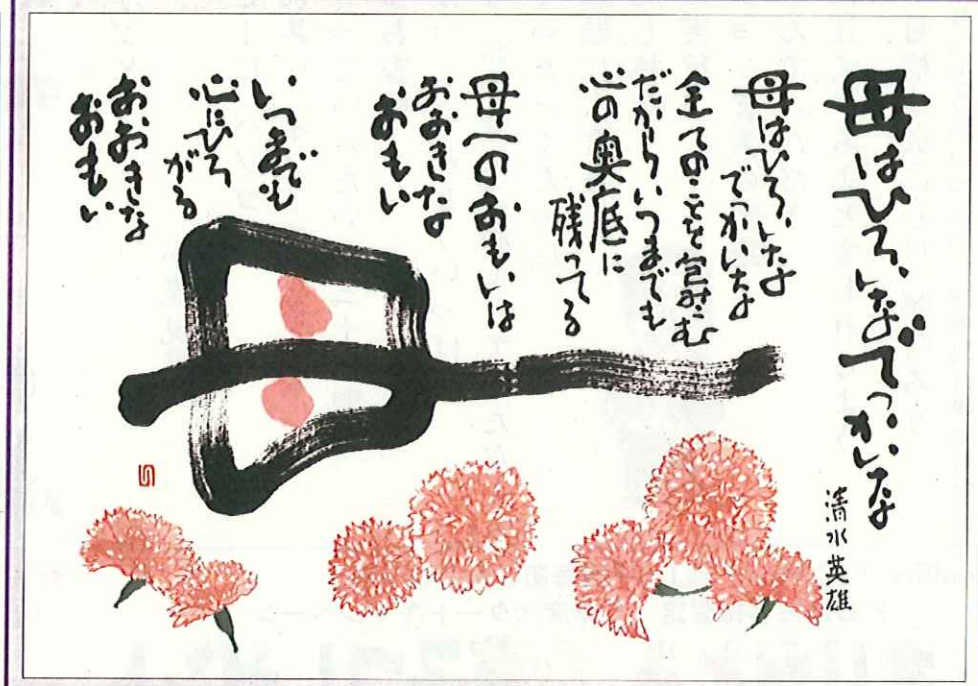 母はひろいなでっかいな
清水英雄
母はひろいなよ
でっかいなよ
全てのことを包みこむ
だからいつまでも
心の奥底に
残ってる
母へのおもいは
おおきなよ
おもい
いつまでも
心にひろ
がる
おおきな
おもい
母